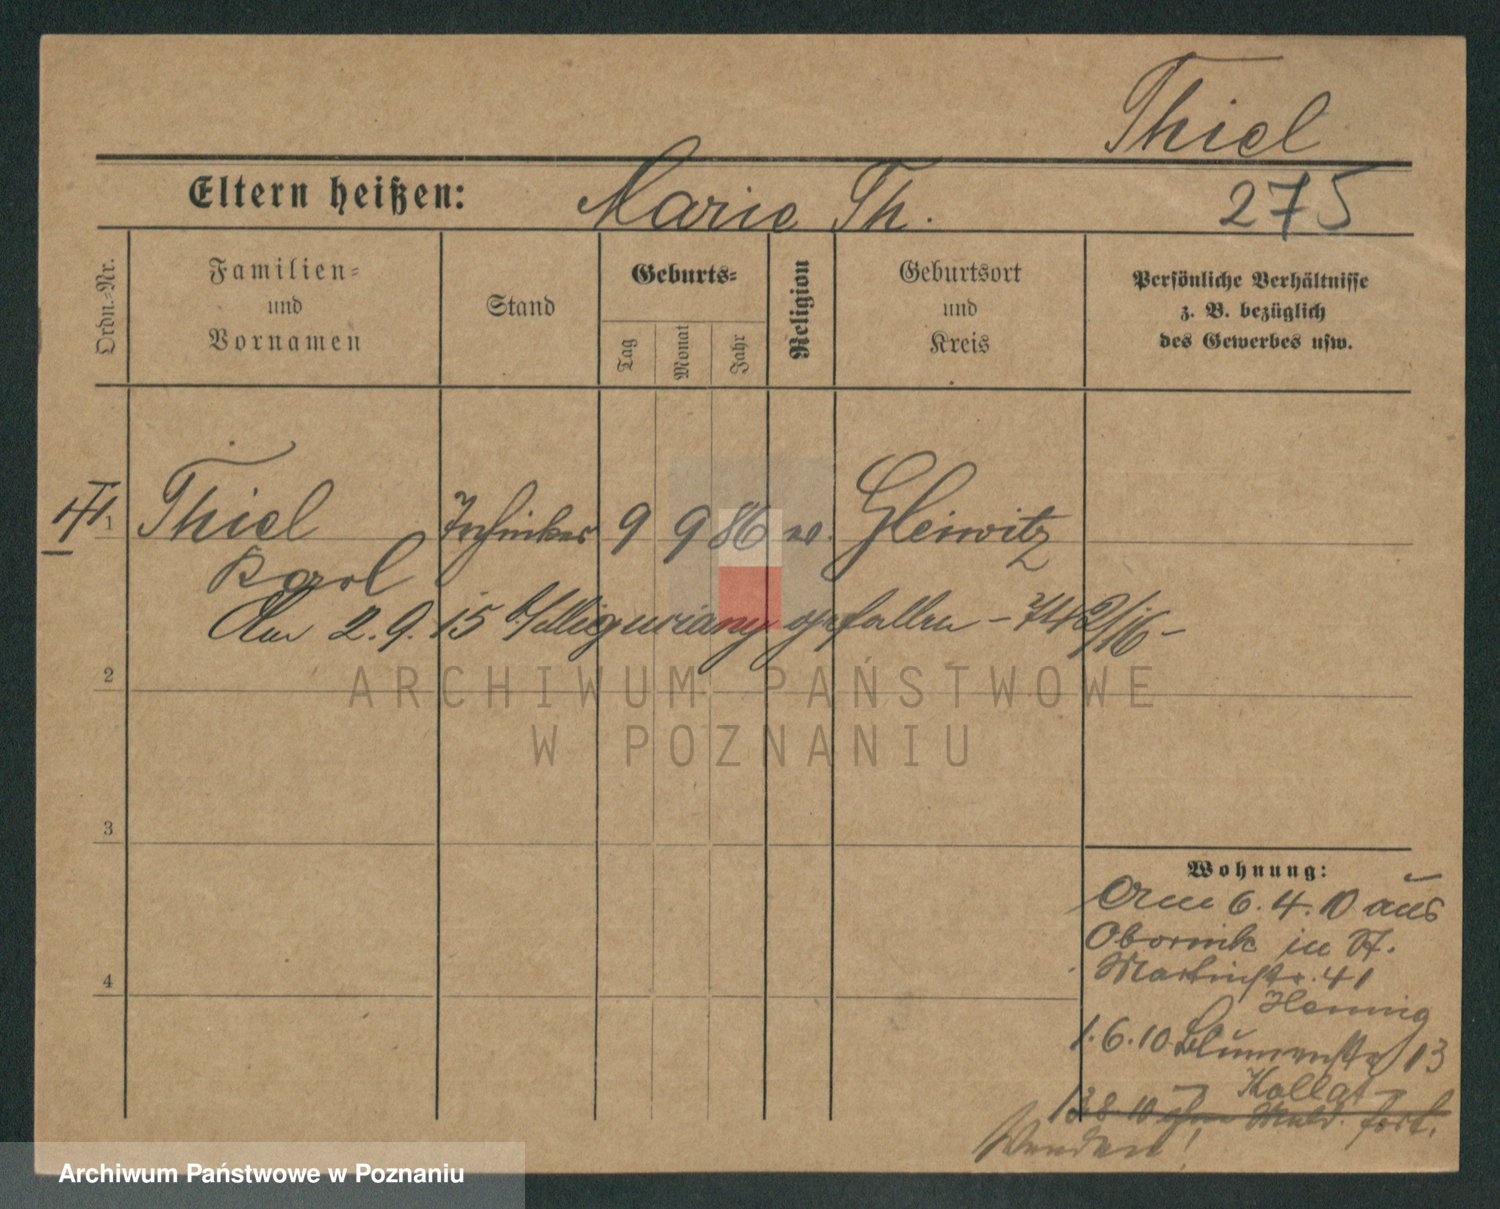 Thiel
Eltern heißen: Marie Th. 275
Ordn.-Nr.
Familien-
und
Vornamen
Stand
Geburts-
Tag
Monat
Jahr
Religion
Geburtsort
und
Kreis
Persönliche Verhältnisse
z. B. bezüglich
des Gewerbes usw.
1 Thiel Techniker 9 9 86 ev. Gleiwitz
Karl
Am 2.9.15 gefallen - 742/16 -
2
ARCHIWUM PAŃSTWOWE
W POZNANIU
3
4
Wohnung:
Am 6.4.10 aus
Obornik in St.
Martinstr. 41
Hennig
1.6.10 Blumenstr 13
Kollat
13 8 10 ohne Meld. fort.
Wenden!
Archiwum Państwowe w Poznaniu